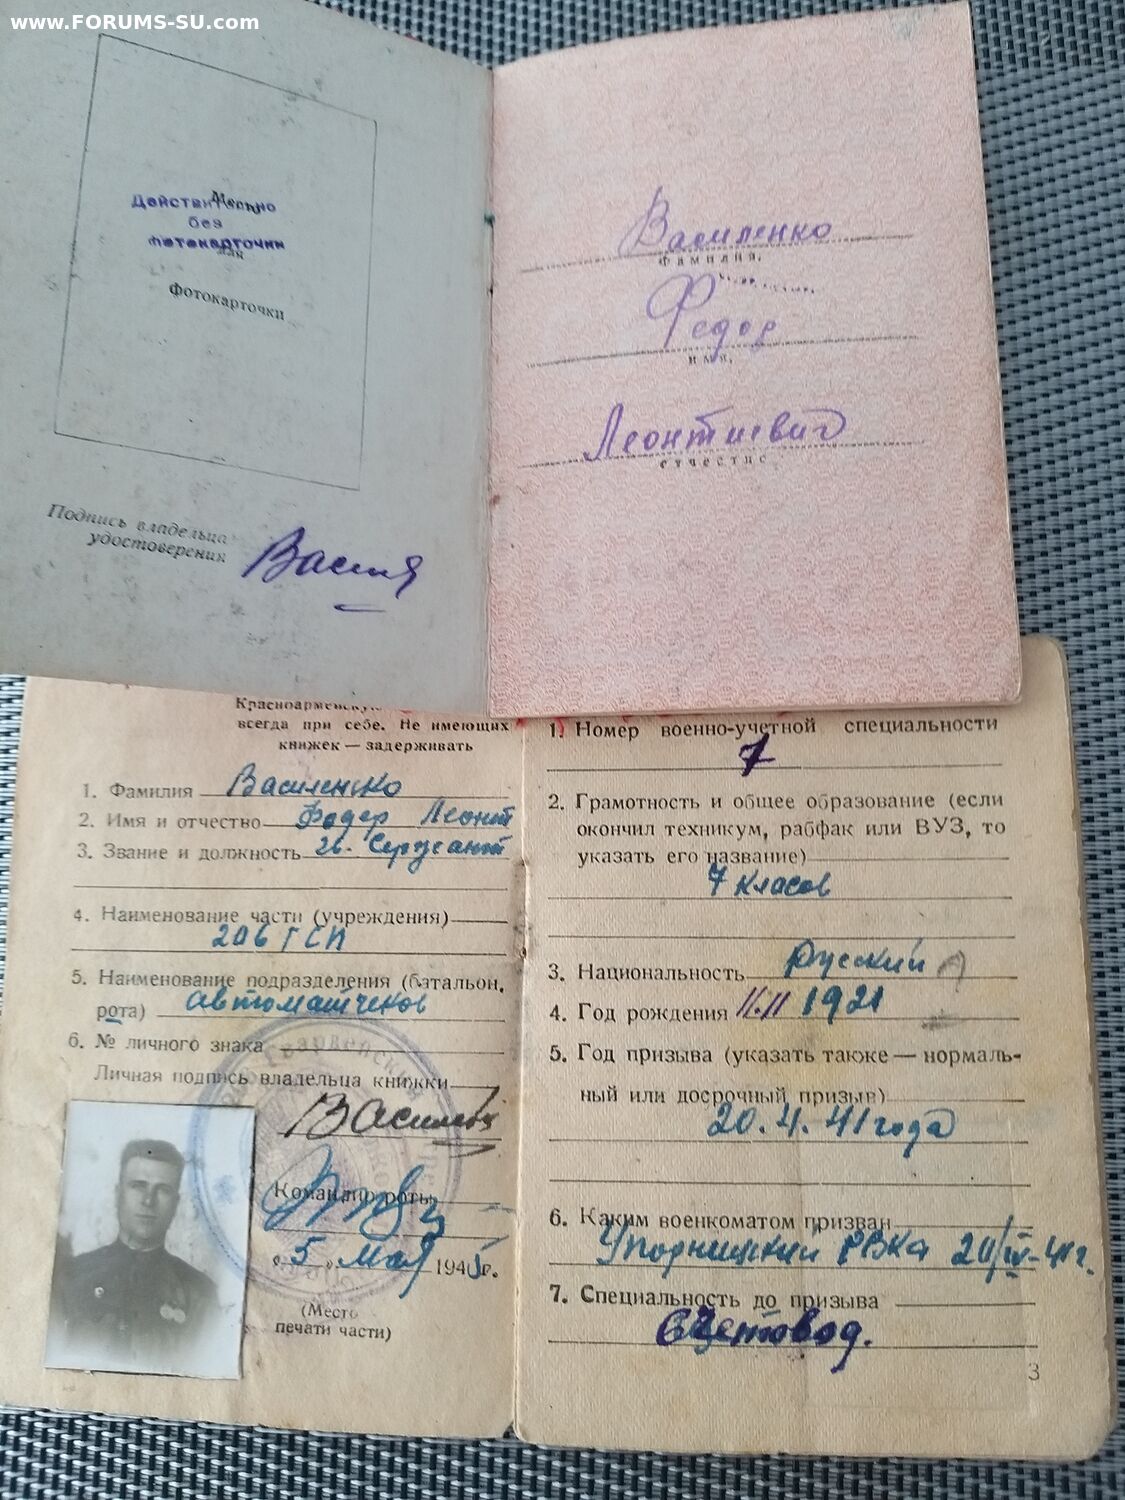 www.FORUMS-SU.com
Действительно
без
фотокарточки
Место
для
Фотокарточки
Подпись владельца
удостоверения
Василенко
фамилия,
Федор
имя,
Леонтиевич
отчество
Красноармейскую
всегда при себе. Не имеющих
книжек — задерживать
1. Фамилия Василенко
2. Имя и отчество Федор Леонт
3. Звание и должность гв. Сержант
4. Наименование части (учреждения)
206 ГСП
5. Наименование подразделения (батальон,
рота) автоматчеков
6. № личного знака
Личная подпись владельца книжки
Командир роты
„5„ мая 1945г.
(Место
печати части)
1. Номер военно-учетной специальности
7
2. Грамотность и общее образование (если
окончил техникум, рабфак или ВУЗ, то
указать его название)
7 класов
3. Национальность Русский
4. Год рождения 11.11 1921
5. Год призыва (указать также — нормаль-
ный или досрочный призыв)
20.4.41 года
6. Каким военкоматом призван
РВКа 20/IV-41г.
7. Специальность до призыва
Счетовод.
3